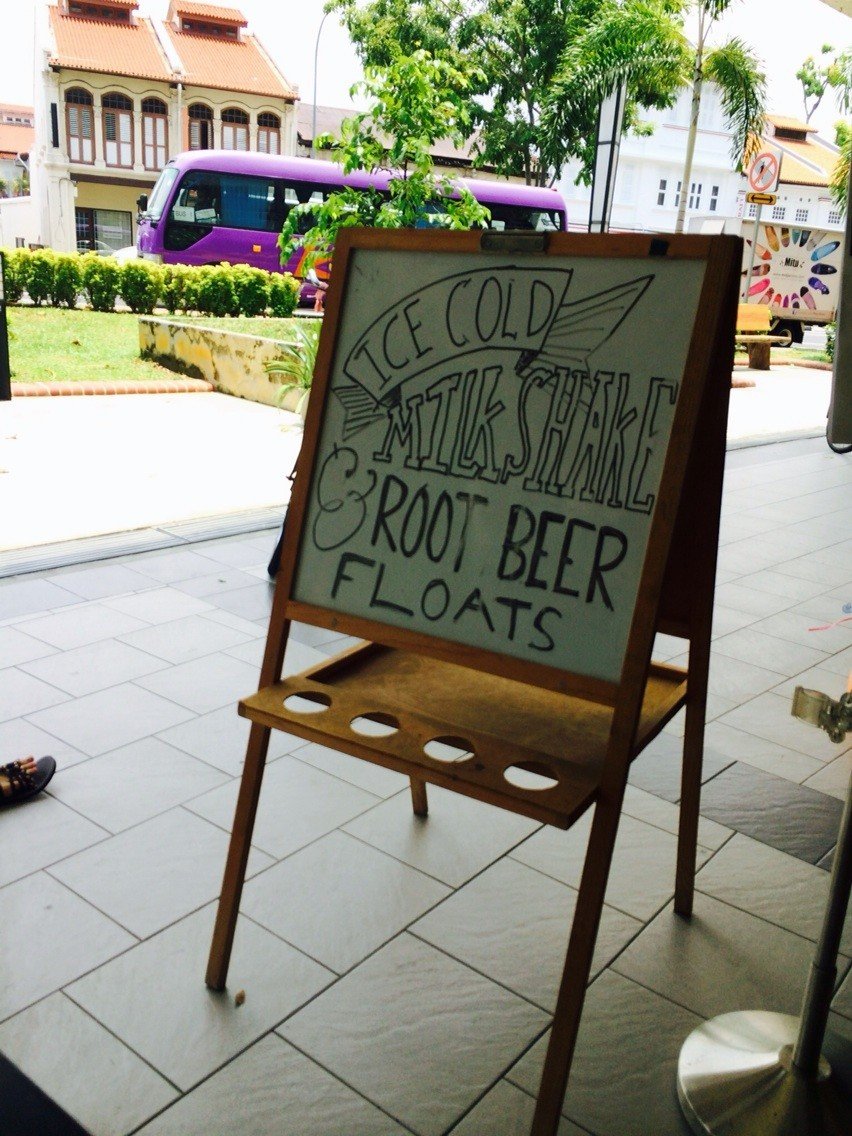 ICE COLD
MILKSHAKE
& ROOT BEER
FLOATS
BUS
Mitju